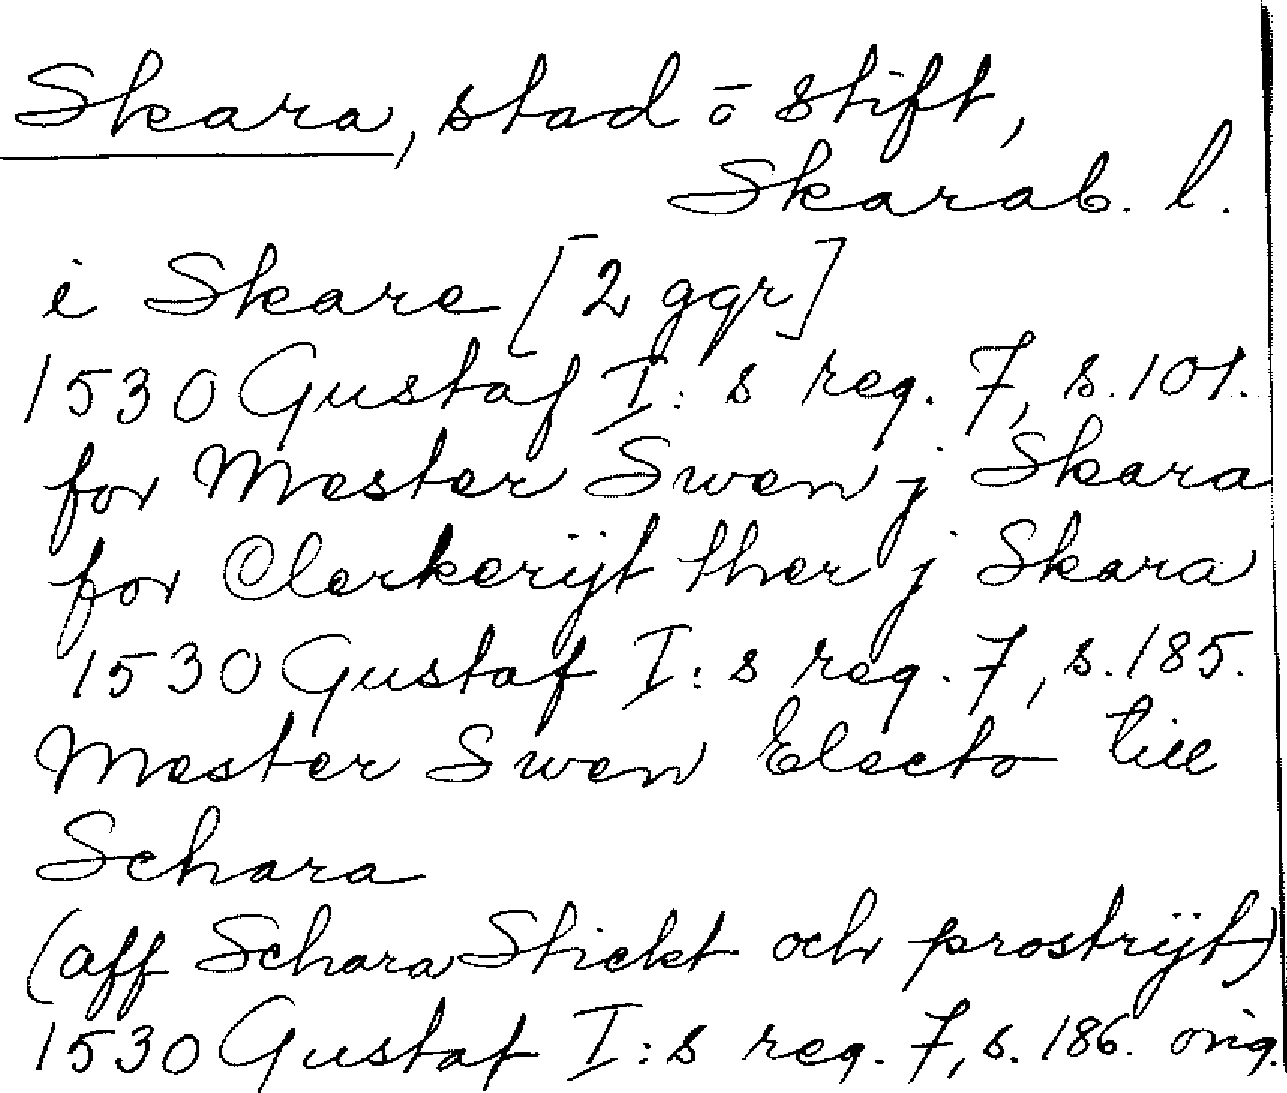 Skara, stad ō stift,
Skarab. l.
i Skare [2 ggr]
1530 Gustaf I:s reg. 7, s. 101.
for Mester Swen j Skara
for Clerkerijt ther j Skara
1530 Gustaf I:s reg. 7, s. 185.
Mester Swen Electo till
Schara
(aff Schara Stickt och prostrijt)
1530 Gustaf I:s reg. 7, s. 186. orig.